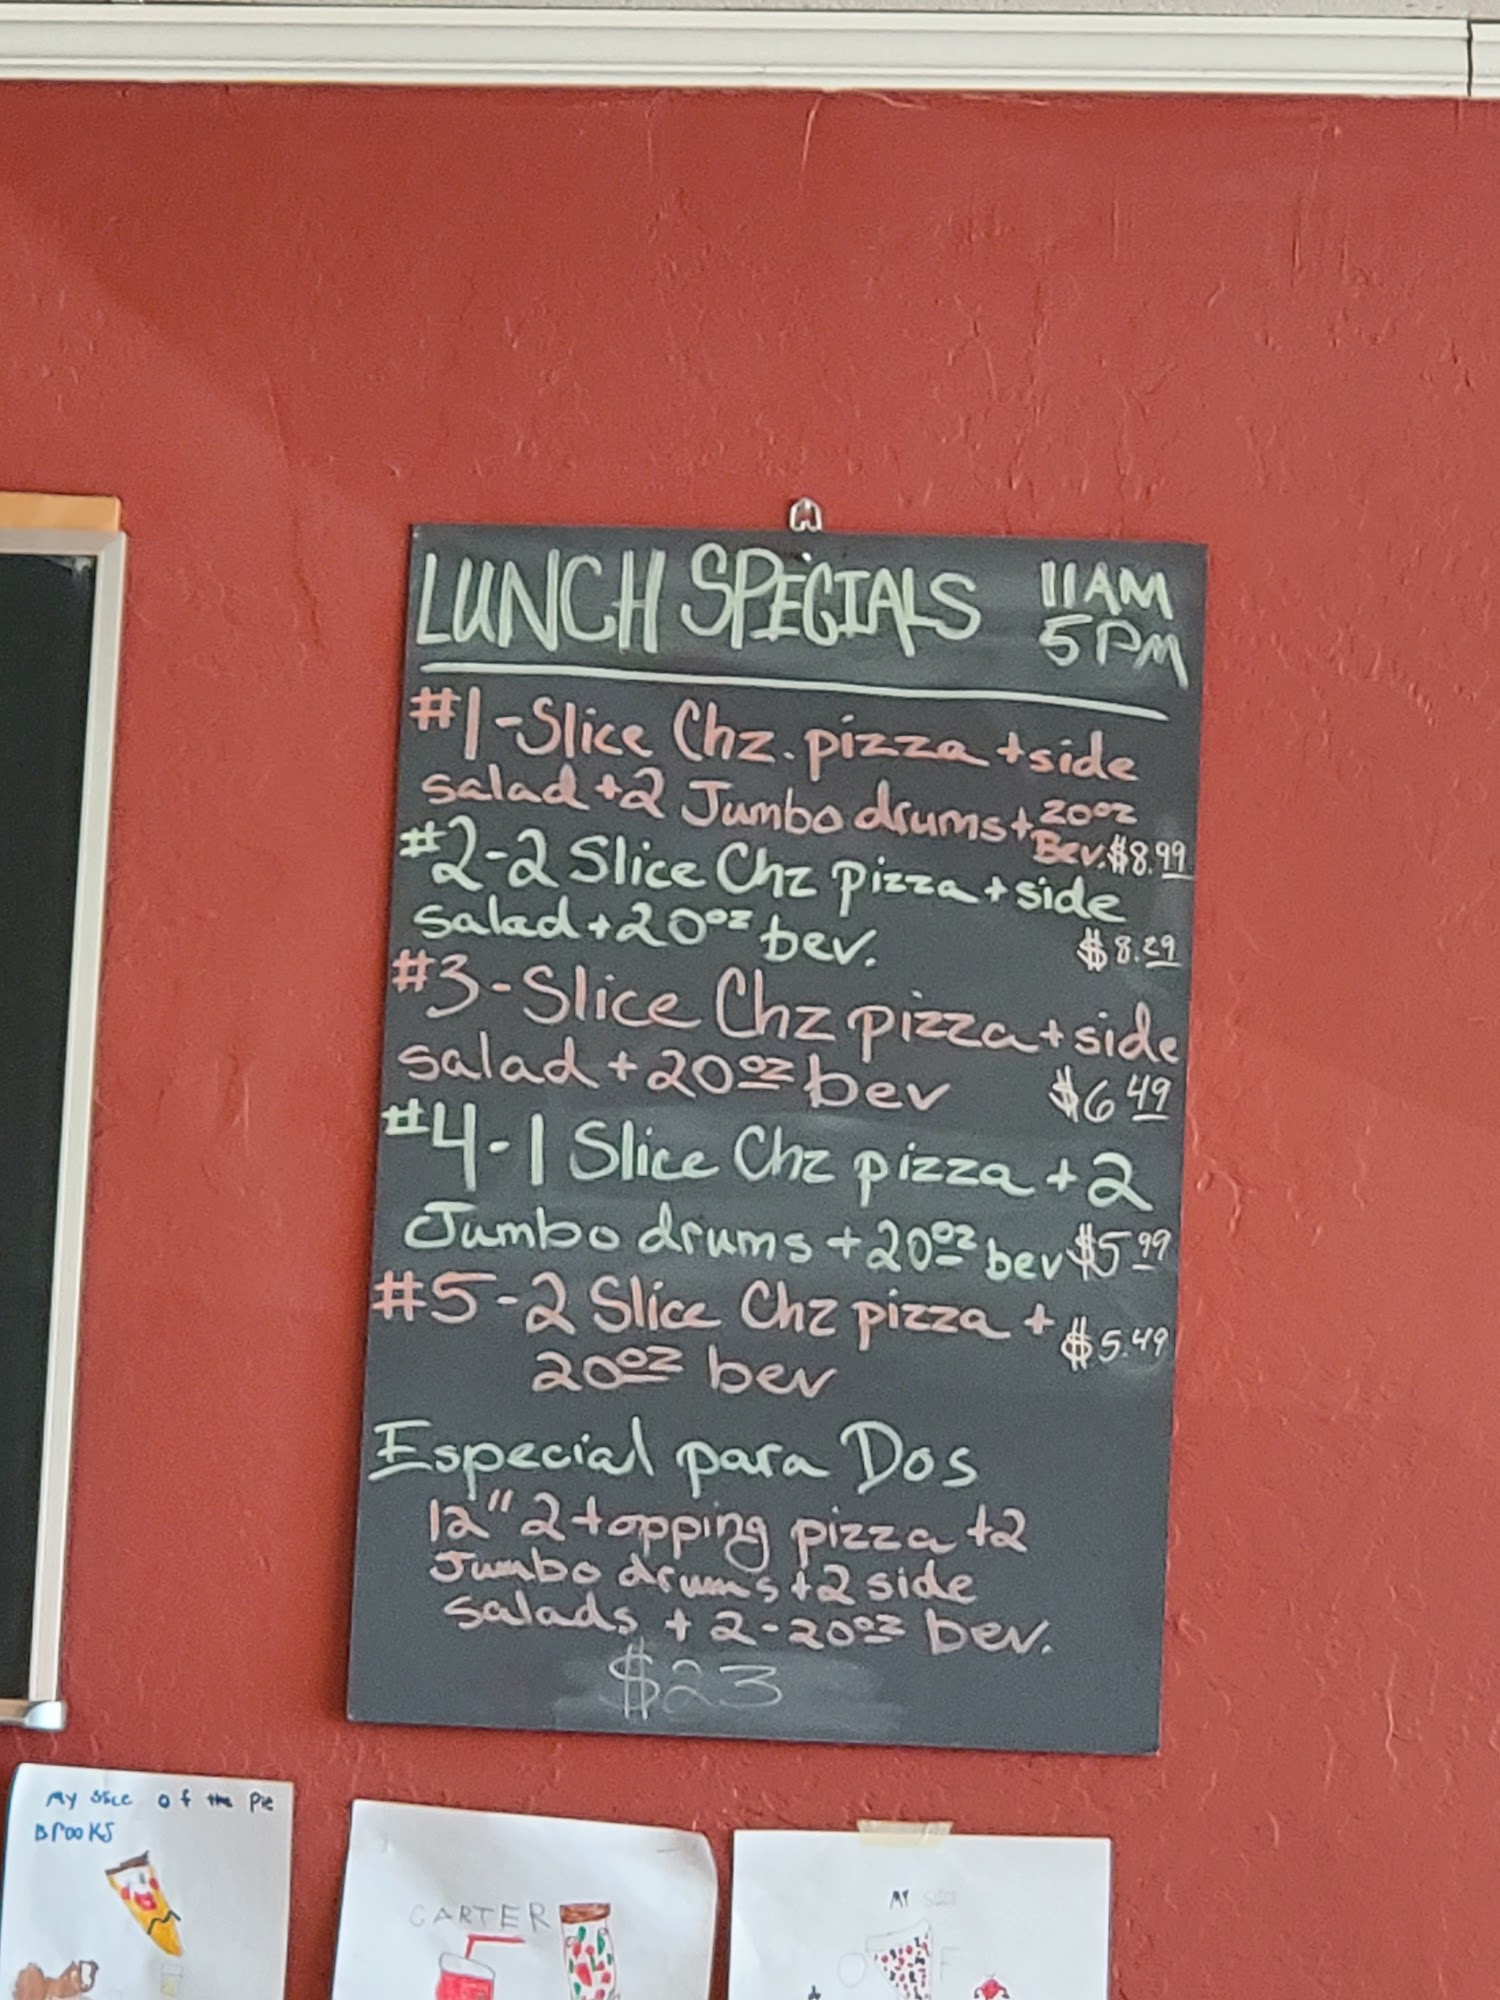 LUNCH SPECIALS 11AM
5PM
#1-Slice Chz. pizza + side
salad + 2 Jumbo drums + 20oz
Bev. $8.99
#2-2 Slice Chz pizza + side
salad + 20oz bev.
$8.29
#3-Slice Chz pizza + side
salad + 20oz bev $6 49
#4-1 Slice Chz pizza + 2
Jumbo drums + 20oz bev $5 99
#5-2 Slice Chz pizza + $5.49
20oz bev
Especial para Dos
12" 2 topping pizza +2
Jumbo drums +2 side
salads + 2-20oz bev.
$23
My slice of the Pie
Brooks
CARTER
My